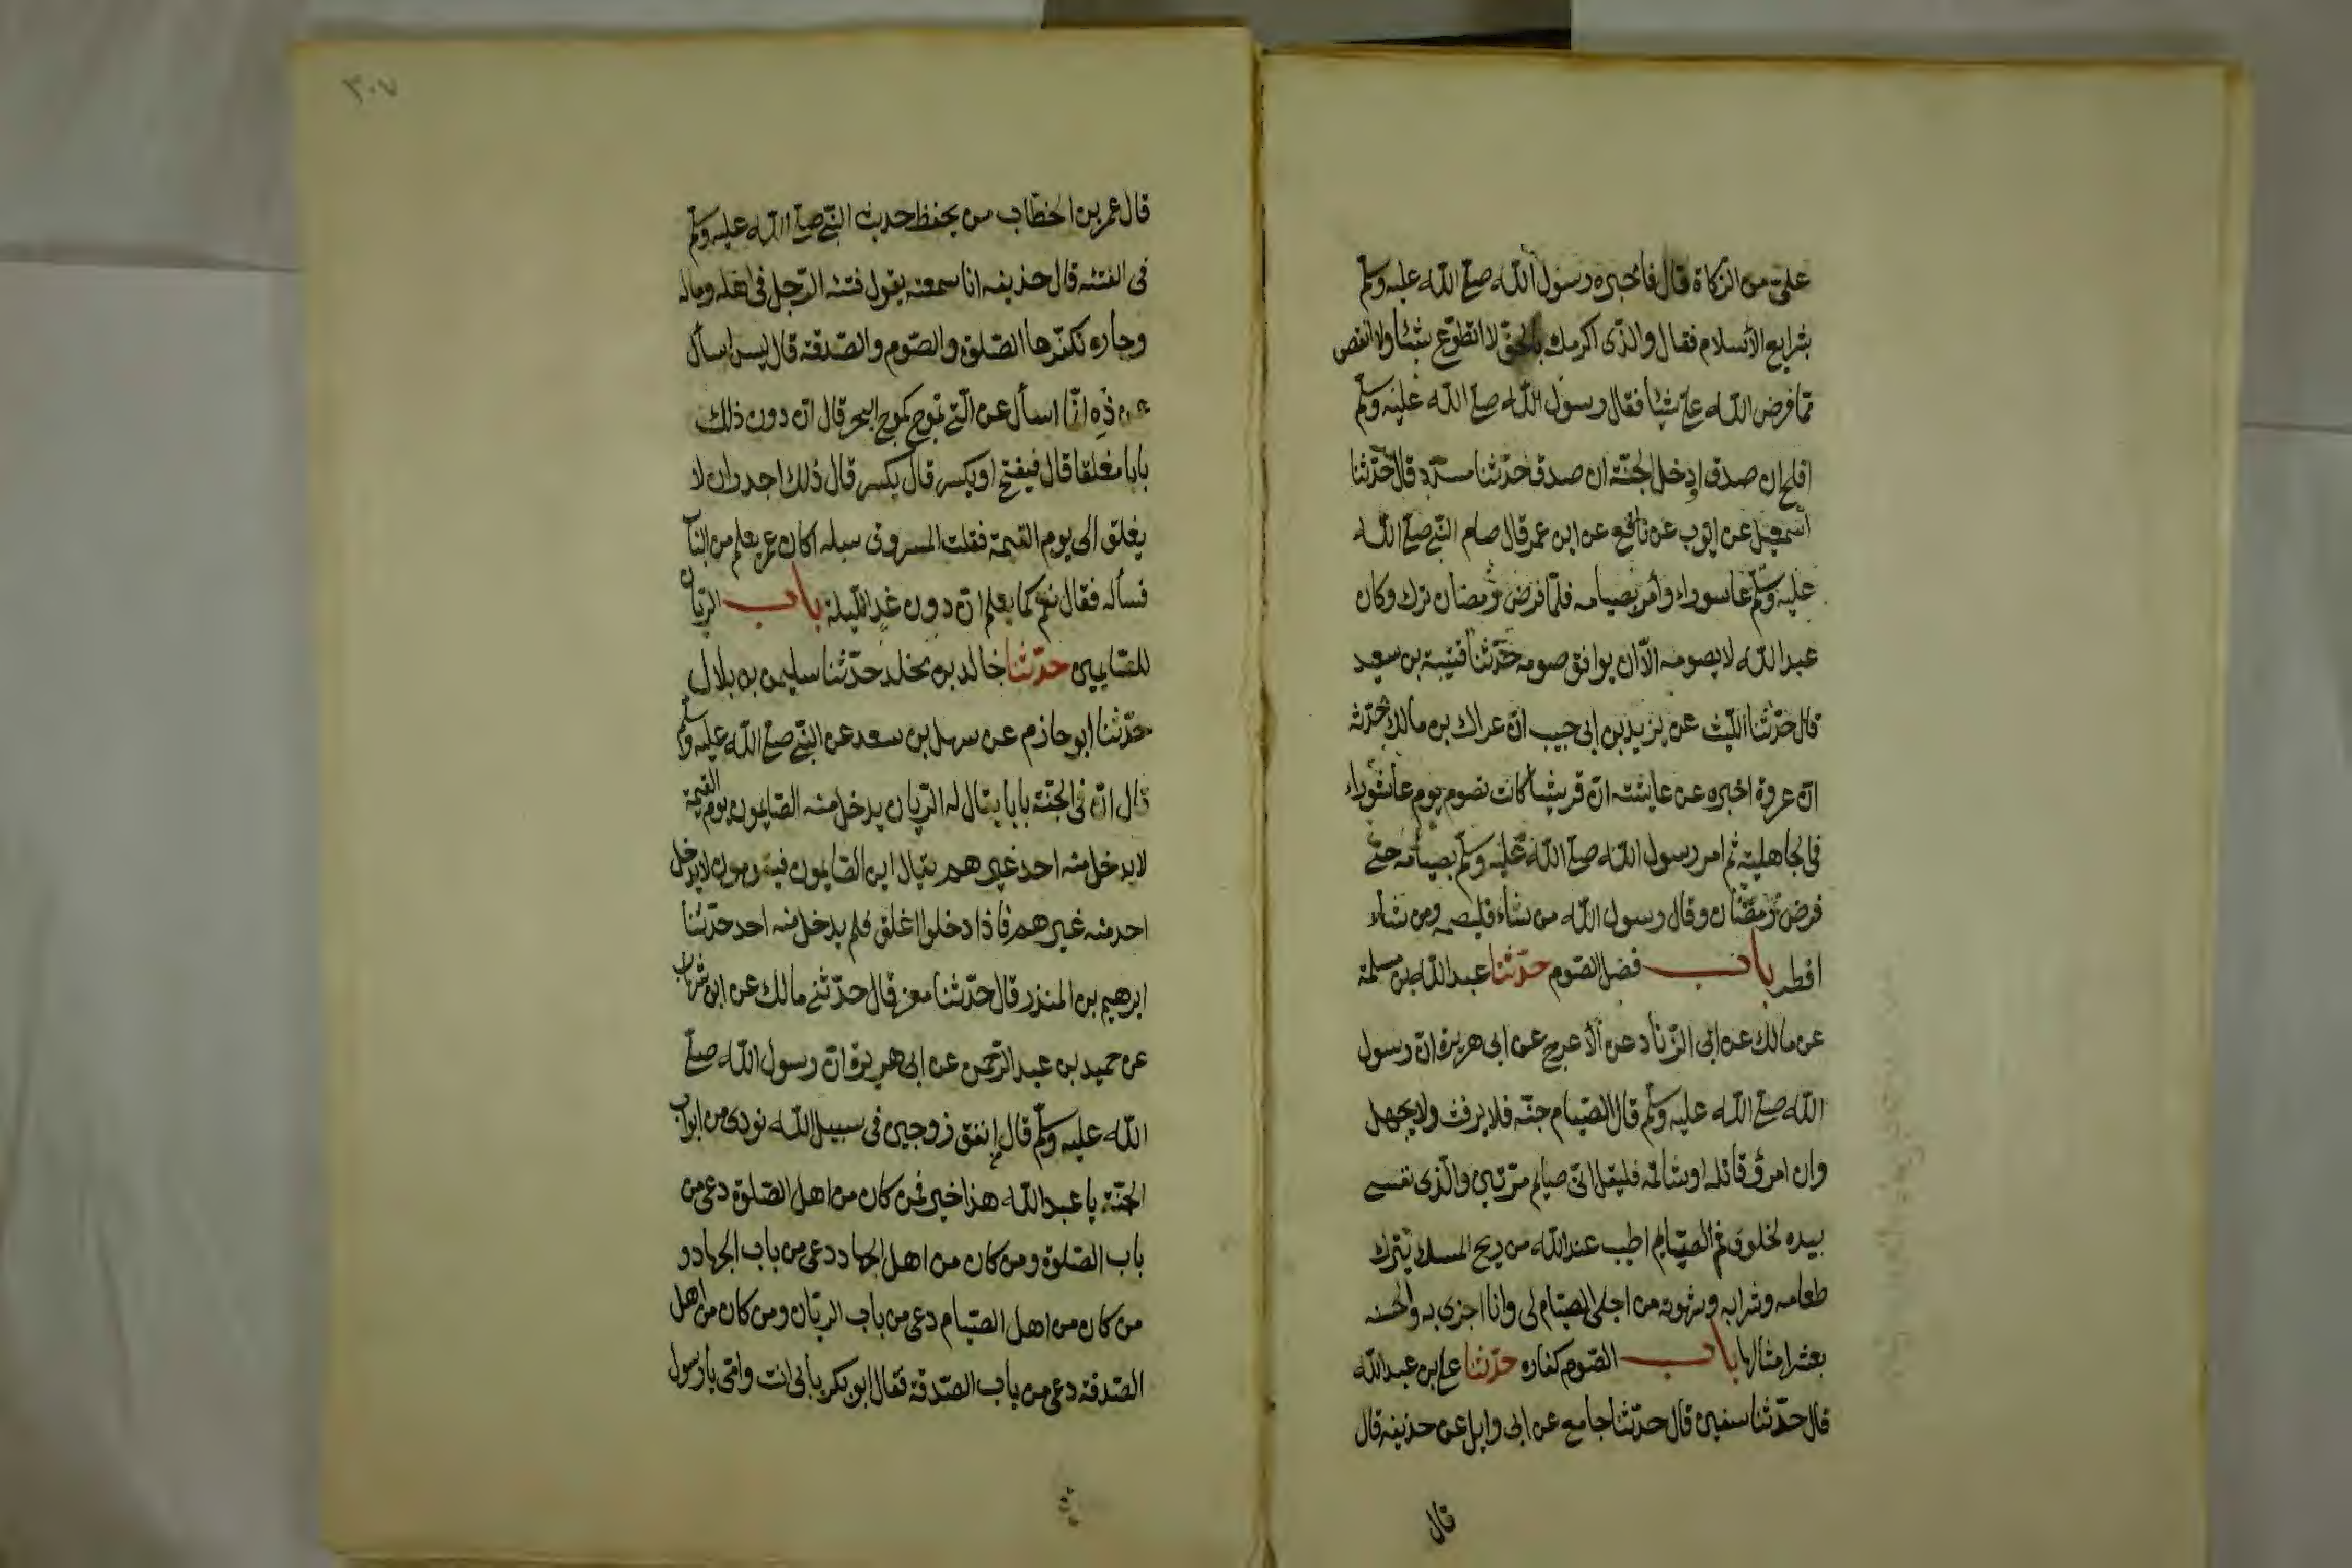 علي من الزكاة قال فاخبره رسول الله صلى الله عليه وسلم
بشرايع الاسلام فقال والذى اكرمك بالحق لا اتطوع شيئا ولا انقص
مما فرض الله على شيئا فقال رسول الله صلى الله عليه وسلم
افلح ان صدق او دخل الجنة ان صدق حدثنا مسدد قال حدثنا
اسمعيل عن ايوب عن نافع عن ابن عمر قال صام النبي صلى الله
عليه وسلم عاشوراء وأمر بصيامه فلما فرض رمضان ترك وكان
عبد الله لا يصومه الا ان يوافق صومه حدثنا قتيبة بن سعيد
قال حدثنا الليث عن يزيد بن ابي حبيب ان عراك بن مالك حدثه
ان عروة اخبره عن عايشة ان قريشا كانت تصوم يوم عاشوراء
في الجاهلية ثم امر رسول الله صلى الله عليه وسلم بصيامه حتى
فرض رمضان وقال رسول الله من شاء فليصمه ومن شاء
افطر باب فضل الصوم حدثنا عبد الله بن مسلمة
عن مالك عن ابي الزناد عن الأعرج عن ابي هريرة ان رسول
الله صلى الله عليه وسلم قال الصيام جنة فلا يرفث ولا يجهل
وان امرؤ قاتله او شاتمه فليقل انى صايم مرتين والذى نفسي
بيده لخلوف فم الصايم اطيب عند الله من ريح المسك يترك
طعامه وشرابه وشهوته من اجلي الصيام لى وانا اجزى به والحسنه
بعشر امثالها باب الصوم كفاره حدثنا على بن عبد الله
قال حدثنا سفين قال حدثنا جامع عن ابى وايل عن حذيفه قال
قال
٣٠٧
قال عمر بن الخطاب من يحفظ حديث النبي صلى الله عليه وسلم
فى الفتنه قال حذيفه انا سمعته يقول فتنه الرجل فى اهله وماله
وجاره تكفرها الصلوة والصوم والصدقة قال ليس اسأل
عن ذه انما اسأل عن التى تموج كموج البحر قال ان دون ذلك
بابا مغلقا قال فيفتح او يكسر قال يكسر قال ذلك اجدر ان لا
يغلق الى يوم القيمة فقلت المسروق سله اكان عمر يعلم من الباب
فسأله فقال نعم كما يعلم ان دون غد الليلة باب الريان
للصايمين حدثنا خالد بن مخلد حدثنا سليمن بن بلال
حدثنا ابو حازم عن سهل بن سعد عن النبي صلى الله عليه وسلم
قال ان فى الجنة بابا يقال له الريان يدخل منه الصايمون يوم القيمة
لا يدخل منه احد غيرهم يقال اين الصايمون فيقومون لا يدخل
احد منه غيرهم فاذا دخلوا اغلق فلم يدخل منه احد حدثنا
ابرهيم بن المنذر قال حدثنا معن قال حدثني مالك عن ابن شهاب
عن حميد بن عبد الرحمن عن ابى هريرة ان رسول الله صلى
الله عليه وسلم قال انفق زوجين فى سبيل الله نودى من ابواب
الجنة يا عبد الله هذا خير فمن كان من اهل الصلوة دعى من
باب الصلوة ومن كان من اهل الجهاد دعى من باب الجهاد و
من كان من اهل الصيام دعى من باب الريان ومن كان من اهل
الصدقة دعى من باب الصدقة فقال ابو بكر بأبى انت وامى يا رسول